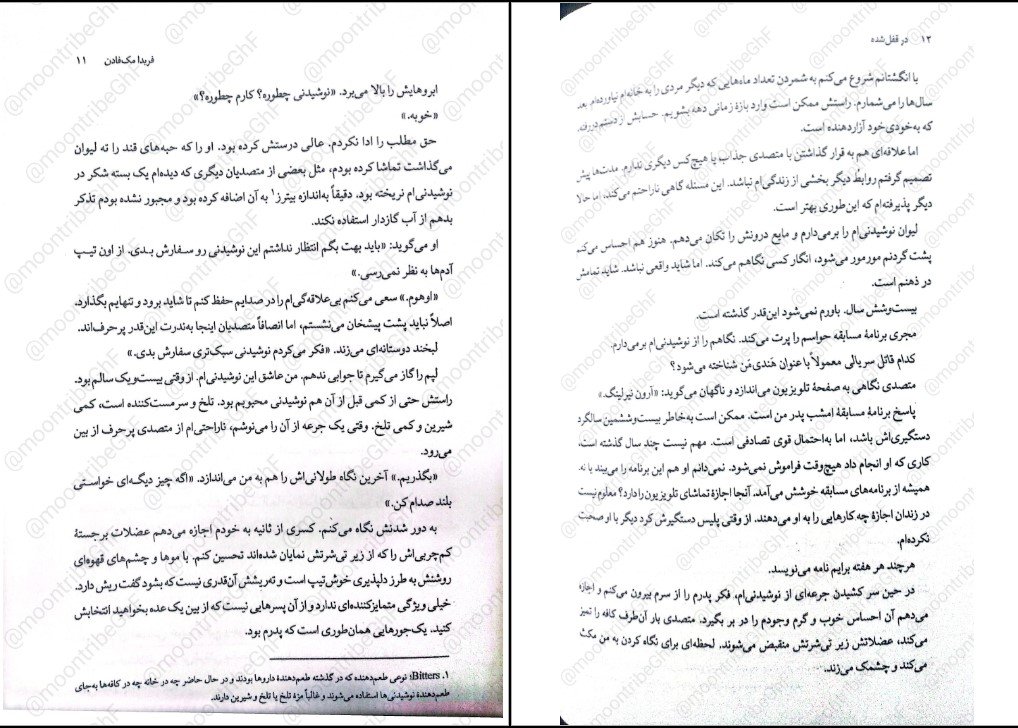 فریدا مک‌فادن ۱۱
ابروهایش را بالا می‌برد. «نوشیدنی چطوره؟ کارم چطوره؟»
«خوبه.»
حق مطلب را ادا نکردم. عالی درستش کرده بود. او را که حبه‌های قند را ته لیوان
می‌گذاشت تماشا کرده بودم، مثل بعضی از متصدیان دیگری که دیده‌ام یک بسته شکر در
نوشیدنی‌ام نریخته بود. دقیقاً به‌اندازه بیترز۱ به آن اضافه کرده بود و مجبور نشده بودم تذکر
بدهم از آب گازدار استفاده نکند.
او می‌گوید: «باید بهت بگم انتظار نداشتم این نوشیدنی رو سفارش بدی. از اون تیپ
آدم‌ها به نظر نمی‌رسی.»
«اوهوم.» سعی می‌کنم بی‌علاقه‌گی‌ام را در صدایم حفظ کنم تا شاید برود و تنهایم بگذارد.
اصلاً نباید پشت پیشخان می‌نشستم، اما انصافاً متصدیان اینجا به‌ندرت این‌قدر پرحرف‌اند.
لبخند دوستانه‌ای می‌زند. «فکر می‌کردم نوشیدنی سبک‌تری سفارش بدی.»
لپم را گاز می‌گیرم تا جوابی ندهم. من عاشق این نوشیدنی‌ام. از وقتی بیست‌ویک سالم بود.
راستش حتی از کمی قبل از آن هم نوشیدنی محبوبم بود. تلخ و سرمست‌کننده است، کمی
شیرین و کمی تلخ. وقتی یک جرعه از آن را می‌نوشم، ناراحتی‌ام از متصدی پرحرف از بین
می‌رود.
«بگذریم.» آخرین نگاه طولانی‌اش را هم به من می‌اندازد. «اگه چیز دیگه‌ای خواستی
بلند صدام کن.»
به دور شدنش نگاه می‌کنم. کسری از ثانیه به خودم اجازه می‌دهم عضلات برجستهٔ
کم‌چربی‌اش را که از زیر تی‌شرتش نمایان شده‌اند تحسین کنم. با موها و چشم‌های قهوه‌ای
روشنش به طرز دلپذیری خوش‌تیپ است و ته‌ریشش آن‌قدری نیست که بشود گفت ریش دارد.
خیلی ویژگی متمایزکننده‌ای ندارد و از آن پسرهایی نیست که از بین یک عده بخواهید انتخابش
کنید. یک‌جورهایی همان‌طوری است که پدرم بود.
۱. Bitters؛ نوعی طعم‌دهنده که در گذشته طعم‌دهندهٔ داروها بودند و در حال حاضر چه در خانه چه در کافه‌ها به‌جای
طعم‌دهندهٔ نوشیدنی‌ها استفاده می‌شوند و غالباً مزهٔ تلخ یا تلخ و شیرین دارند.
۱۲ در قفل‌شده
با انگشتانم شروع می‌کنم به شمردن تعداد ماه‌هایی که دیگر مردی را به خانه‌ام نیاورده‌ام. بعد
سال‌ها را می‌شمارم. راستش ممکن است وارد بازهٔ زمانی دهه بشویم. حسابش از دستم دررفته،
که به‌خودی‌خود آزاردهنده است.
اما علاقه‌ای هم به قرار گذاشتن با متصدی جذاب یا هیچ‌کس دیگری ندارم. مدت‌ها پیش
تصمیم گرفتم روابط دیگر بخشی از زندگی‌ام نباشد. این مسئله گاهی ناراحتم می‌کند، اما حالا
دیگر پذیرفته‌ام که این‌طوری بهتر است.
لیوان نوشیدنی‌ام را برمی‌دارم و مایع درونش را تکان می‌دهم. هنوز هم احساس می‌کنم
پشت گردنم مورمور می‌شود، انگار کسی نگاهم می‌کند. اما شاید واقعی نباشد. شاید تمامش
در ذهنم است.
بیست‌وشش سال. باورم نمی‌شود این‌قدر گذشته است.
مجری برنامهٔ مسابقه حواسم را پرت می‌کند. نگاهم را از نوشیدنی‌ام برمی‌دارم.
کدام قاتل سریالی معمولاً با عنوان هَندی‌مَن شناخته می‌شود؟
متصدی نگاهی به صفحهٔ تلویزیون می‌اندازد و ناگهان می‌گوید: «آرون نیرلینگ.»
پاسخ برنامهٔ مسابقهٔ امشب پدر من است. ممکن است به‌خاطر بیست‌وششمین سالگرد
دستگیری‌اش باشد، اما به‌احتمال قوی تصادفی است. مهم نیست چند سال گذشته است،
کاری که او انجام داد هیچ‌وقت فراموش نمی‌شود. نمی‌دانم او هم این برنامه را می‌بیند یا نه.
همیشه از برنامه‌های مسابقه خوشش می‌آمد. آنجا اجازهٔ تماشای تلویزیون را دارد؟ معلوم نیست
در زندان اجازهٔ چه کارهایی را به او می‌دهند. از وقتی پلیس دستگیرش کرد دیگر با او صحبت
نکرده‌ام.
هرچند هر هفته برایم نامه می‌نویسد.
در حین سر کشیدن جرعه‌ای از نوشیدنی‌ام، فکر پدرم را از سرم بیرون می‌کنم و اجازه
می‌دهم آن احساس خوب و گرم وجودم را در بر بگیرد. متصدی بار آن‌طرف کافه را تمیز
می‌کند، عضلاتش زیر تی‌شرتش منقبض می‌شوند. لحظه‌ای برای نگاه کردن به من مکث
می‌کند و چشمک می‌زند.
@moontribeGhF